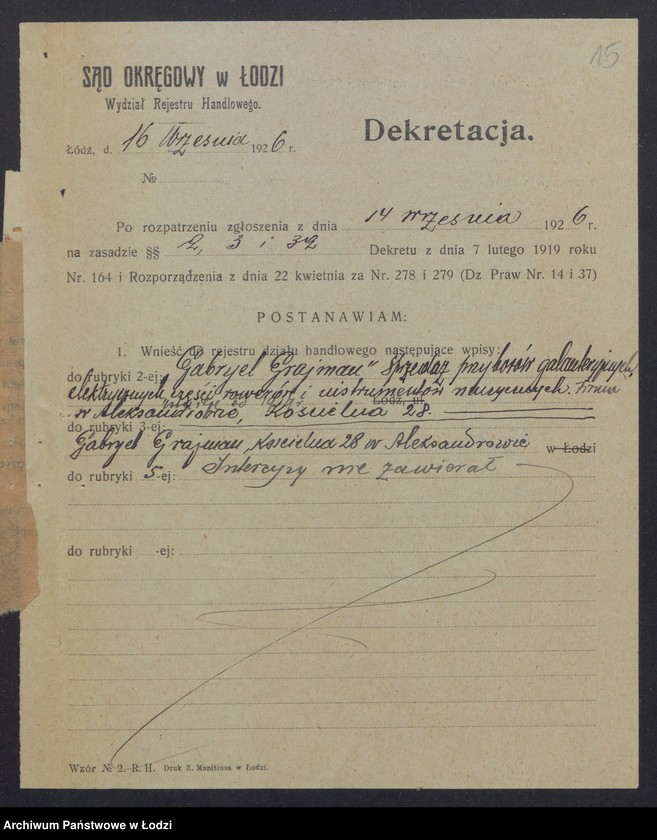 15
SĄD OKRĘGOWY w ŁODZI
Wydział Rejestru Handlowego.
Dekretacja.
Łódź, d. 16 Września 1926 r.
№
Po rozpatrzeniu zgłoszenia z dnia 14 września 1926 r.
na zasadzie §§ 2, 3 i 32 Dekretu z dnia 7 lutego 1919 roku
Nr. 164 i Rozporządzenia z dnia 22 kwietnia za Nr. 278 i 279 (Dz. Praw Nr. 14 i 37)
POSTANAWIAM:
1. Wnieść do rejestru działu handlowego następujące wpisy:
do rubryki 2-ej: „Gabryel Grajman" Sprzedaż przyborów galanteryjnych,
elektrycznych, części rowerów i instrumentów muzycznych. Firma
Łódź, ul.
w Aleksandrowie, Kościelna 28.
do rubryki 3-ej:
Gabryel Grajman, Kościelna 28 w Aleksandrowie w Łodzi
do rubryki 5-ej: Intercyzy nie zawierał
do rubryki -ej:
Wzór № 2. R. H. Druk Z. Manitiusa w Łodzi.
Archiwum Państwowe w Łodzi